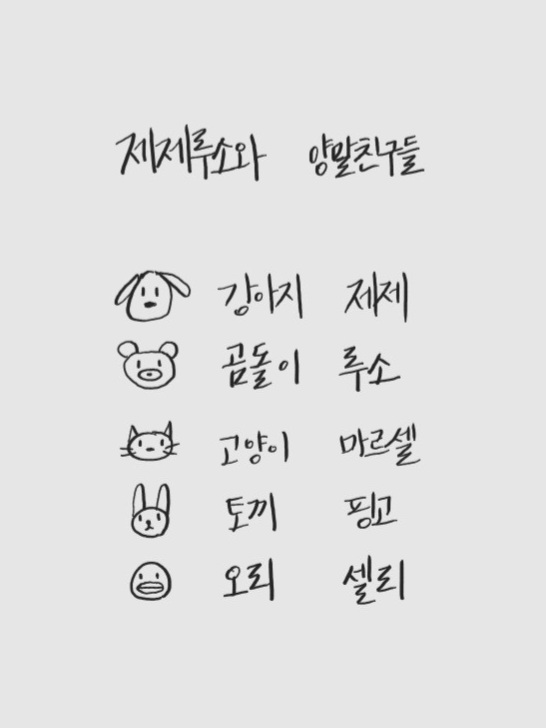 제제루소와 양말친구들
강아지 제제
곰돌이 루소
고양이 마르셀
토끼 핑고
오리 셀리